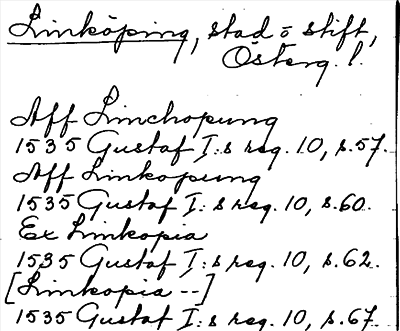 Linköping, stad o stift,
Österg. l.
Aff Linchopung
1535 Gustaf I:s reg. 10, s.57.
Aff Linkopung
1535 Gustaf I:s reg. 10, s.60.
Ex Linkopia
1535 Gustaf I:s reg. 10, s.62.
[Linkopia --]
1535 Gustaf I:s reg. 10, s.67.